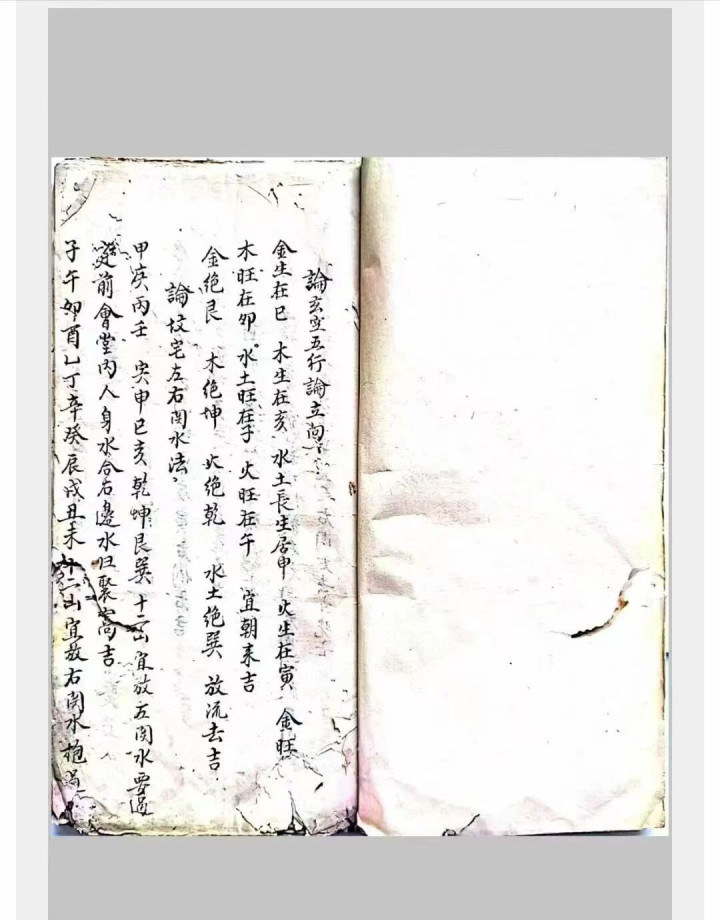 論玄空五行論立向
金生在巳 木生在亥 水土長生居申 火生在寅 金旺
木旺在卯 水土旺在子 火旺在午 宜朝来吉
金绝艮 木绝坤 火绝乾 水土绝巽 放流去吉
論坟宅左右関水法
甲庚丙壬 寅申巳亥 乾坤艮巽 十二山 宜放左関水 要過
前會堂内人身水合右邊水归聚 吉
子午卯酉乙丁辛癸辰戌丑未十二山宜放右関水